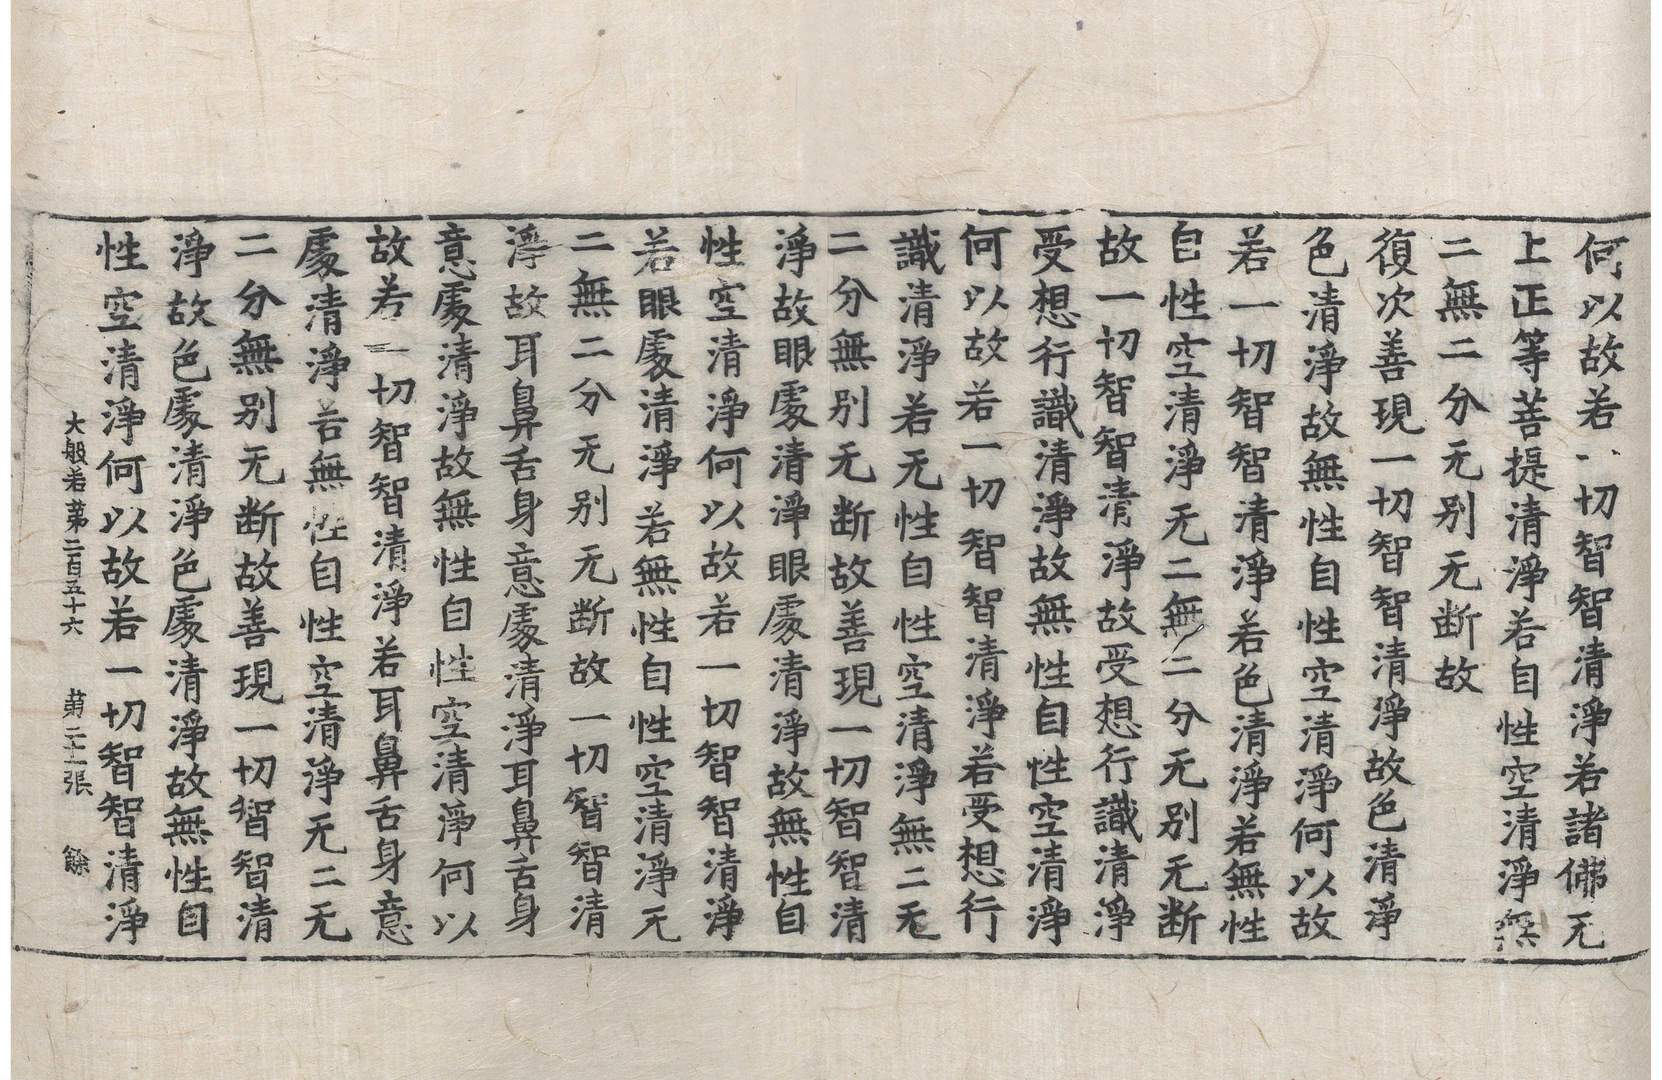 何以故若一切智智清淨若諸佛无
上正等菩提清淨若自性空清淨無
二無二分无别无断故
復次善現一切智智清淨故色清淨
色清淨故無性自性空清淨何以故
若一切智智清淨若色清淨若無性
自性空清淨无二無二分无别无断
故一切智智清淨故受想行識清淨
受想行識清淨故無性自性空清淨
何以故若一切智智清淨若受想行
識清淨若无性自性空清淨無二无
二分無别无断故善現一切智智清
淨故眼處清淨眼處清淨故無性自
性空清淨何以故若一切智智清淨
若眼處清淨若無性自性空清淨无
二無二分无别无断故一切智智清
淨故耳鼻舌身意處清淨耳鼻舌身
意處清淨故無性自性空清淨何以
故若一切智智清淨若耳鼻舌身意
處清淨若無性自性空清淨无二无
二分無别无断故善現一切智智清
淨故色處清淨色處清淨故無性自
性空清淨何以故若一切智智清淨
大般若苐二百五十六 苐二十二張 餘